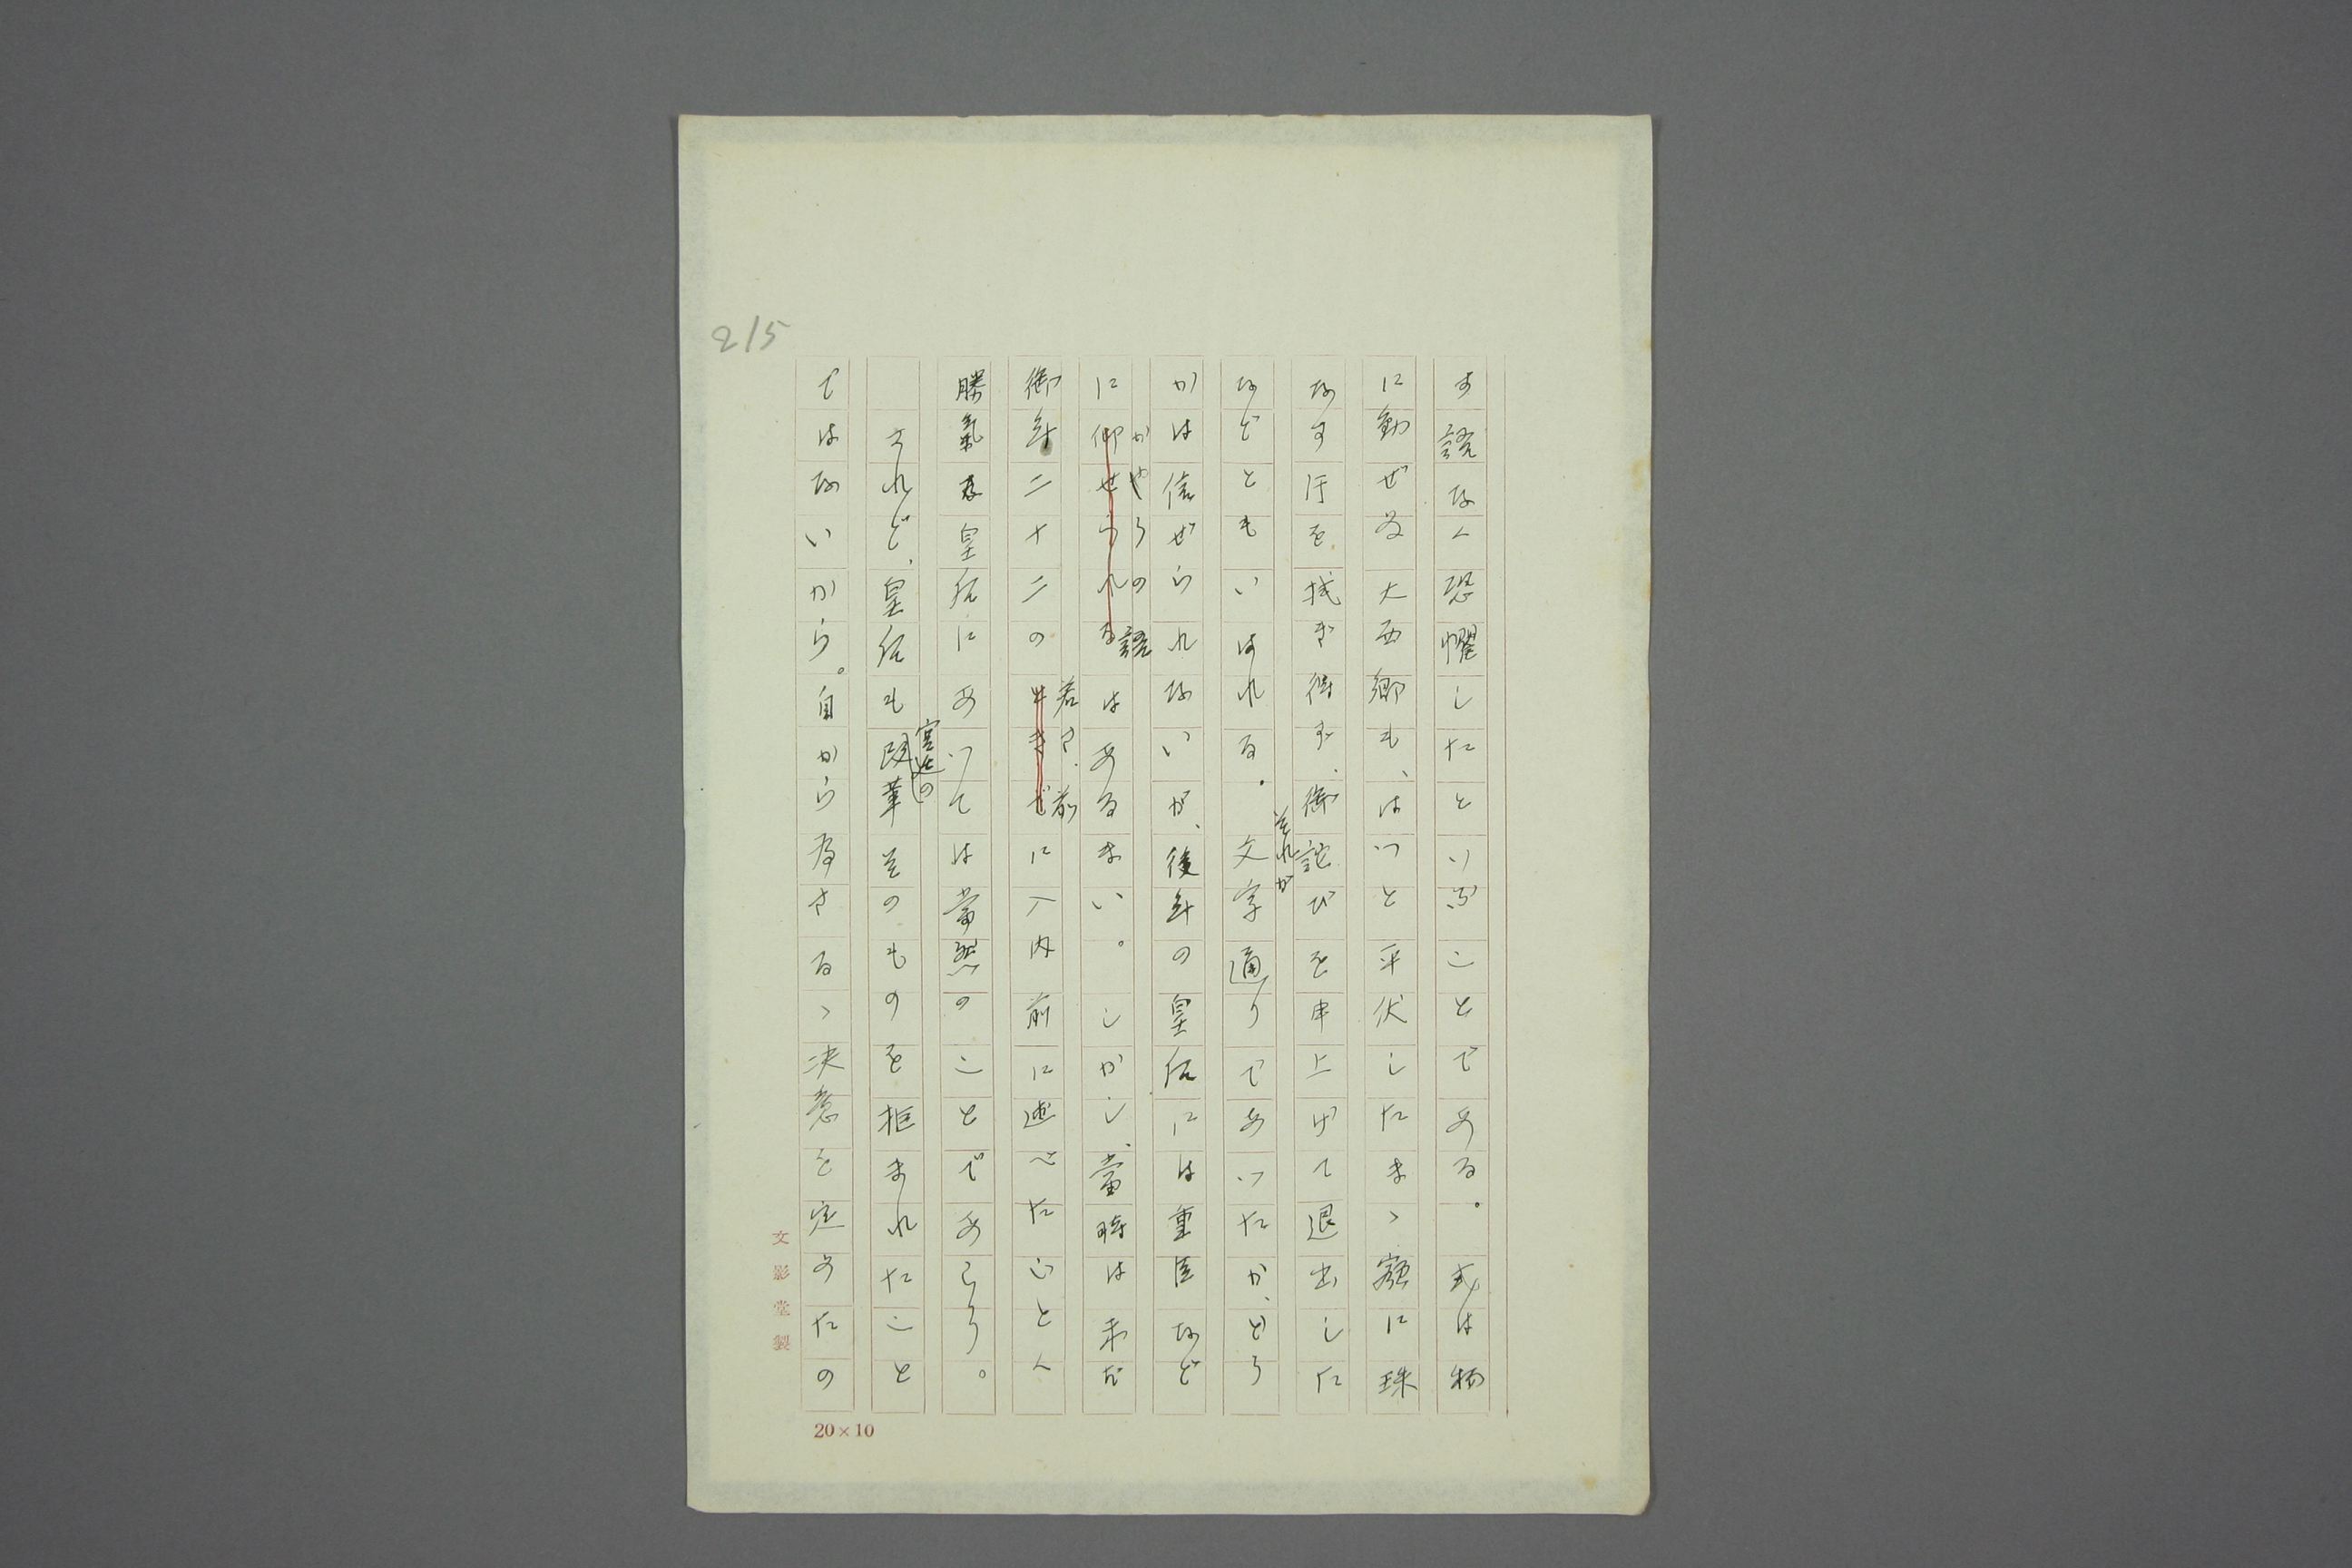 215
す語なく恐懼したといふことである。或は物
に動ぜぬ大西郷も、はつと平伏したまゝ額に珠
なす汗を拭き得ず、御詫びを申上げて退出した
などともいはれる。それが文字通りであつたか、どう
かは信ぜられないが、後年の皇后には重臣など
に仰せられるかやうの語はあるまい。しかし、當時は未だ
御年二十二の若さ、前に入内前に述べた心とく
勝氣な皇后にあつては當然のことであらう。
されど、皇后も宮廷の改革そのものを拒まれたこと
ではないから。自から為さるゝ決意を定めたの
文影堂製
20×10